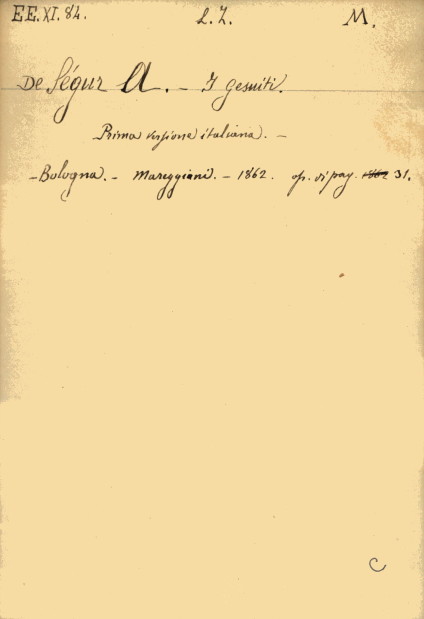 EE.XI.84. L.Z. M.
De Ségur A. - I Gesuiti.
Prima versione italiana. -
- Bologna. - Mareggiani. - 1862. op. di pag. 1862 31.
C